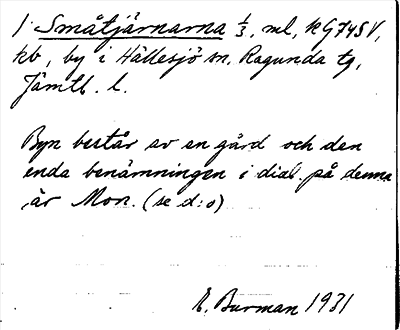 1. Småtjärnarna 1/3, ml, kG74SV,
kb, by i Hällesjö sn, Ragunda tg,
Jämtl. l.
Byn består av en gård och den
enda benämningen i dial. på denna
är Mon. (se d:o)
E. Burman 1931